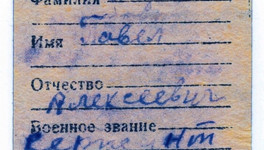 Фамилия
Имя Павел
Отчество
Алексеевич
Военное звание
Сержант